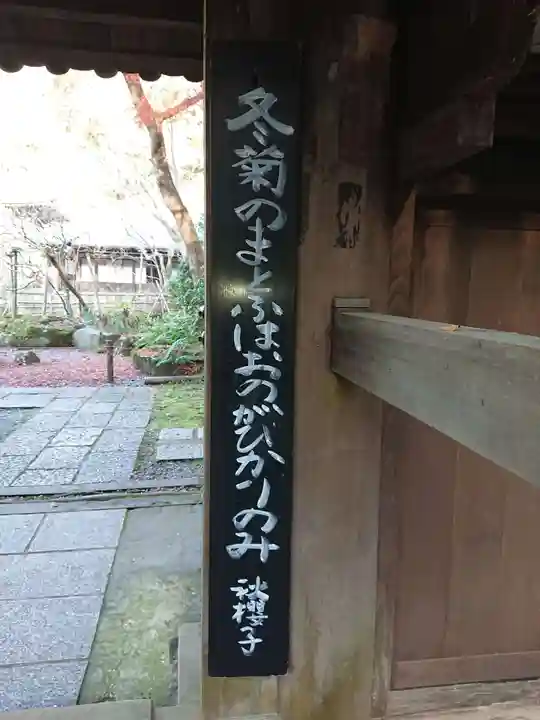 冬菊のまとふはおのがひかりのみ
秋櫻子